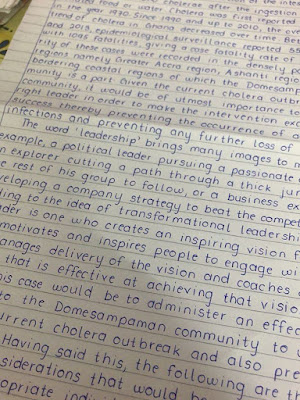 in the year 1970. Cholera was first reported
trend of cholera in Ghana. Since 1990 and up to 2010, the
and 2015, epidemiological decreased over time. Bet
with 1095 fatalities, giving surveillance reported
of these cases were a case fatality rate of
regions namely Greater Accra region, recorded in the densely
bordering coastal regions of which the Domesampa
munity is a part. Given the current cholera outbr
community, it would be of utmost importance to
right leader in order to make the intervention ex
success thereby preventing the occurrence of
infections and preventing any further loss of
The word 'leadership' brings many images to
example, a political leader pursuing a passionate
explorer cutting a path through a thick jun
rest of his group to follow, or a business ex
veloping a company strategy to beat the compet
ding to the idea of transformational leadershi
ader is one who creates an inspiring vision f
motivates and inspires people to engage wi
anages delivery of the vision and coaches
that is effective at achieving that visio
his case would be to administer an effec
to the Domesampaman community to
urrent cholera outbreak and also pre
Having said this, the following are th
siderations that would be
opriate indivi